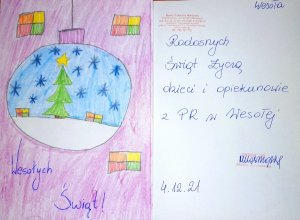 Wesołych
Święt!
Wesoła
Radosnych
Świąt życzą
dzieci i opiekunowie
z PR w Wesołej
4.12.21